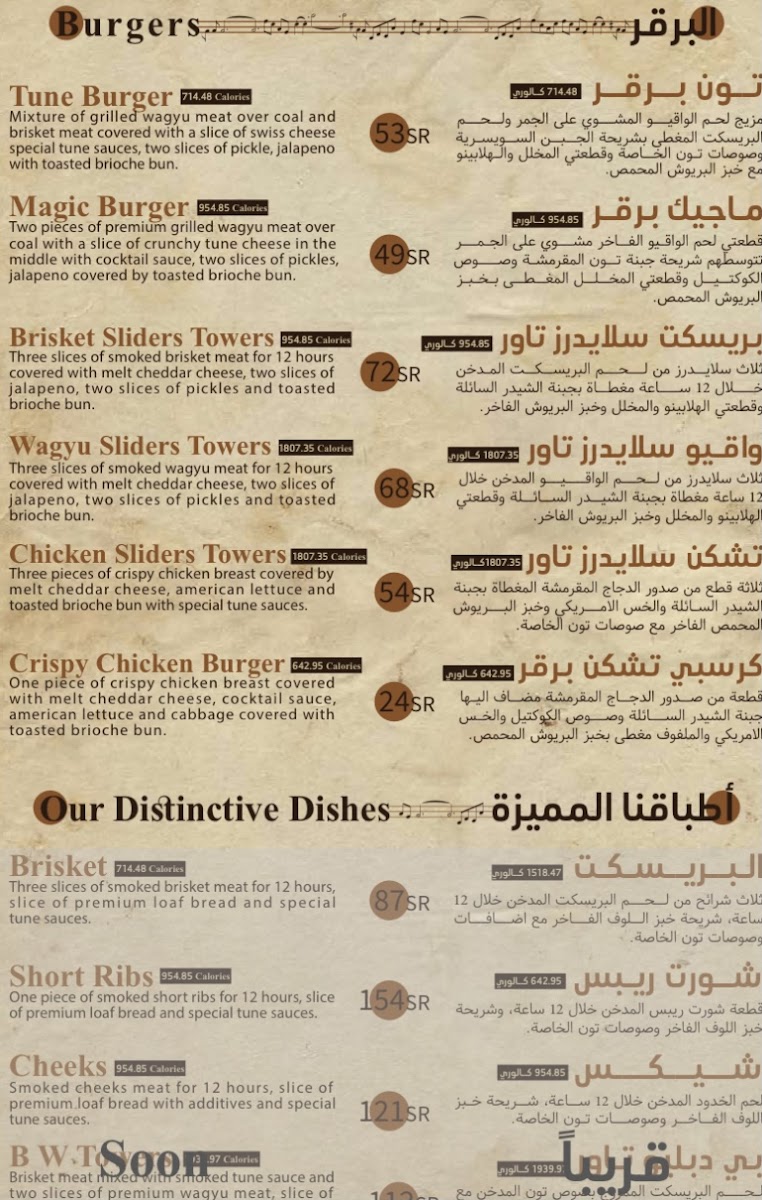 Burgers
البرقر
Tune Burger 714.48 Calories
Mixture of grilled wagyu meat over coal and
brisket meat covered with a slice of swiss cheese
special tune sauces, two slices of pickle, jalapeno
with toasted brioche bun.
53SR
تـــون بـــرقـــر 714.48 كـــالوري
مزيج لحم الواقيـــو المشـــوي على الجمر ولـــحـــم
البريسكت المغطي بشريحة الجـــبـــن الســـويســـرية
وصوصات تـون الخـــاصة وقطعتي المخلل والـــهلابينو
مع خبز البريوش المحمص.
Magic Burger 954.85 Calories
Two pieces of premium grilled wagyu meat over
coal with a slice of crunchy tune cheese in the
middle with cocktail sauce, two slices of pickles,
jalapeno covered by toasted brioche bun.
49SR
مـاجيك برقـر 954.85 كـــالوري
قطعتي لحم الواقـيو الفـــاخر مشـــوي على الجمـــر
تتوسطهم شريحة جبنة تـــون المقرمشـة وصـــوص
الكوكتـــيـــل وقطعتي المخلـــل المغطـــى بـخـبـــز
البريوش المحمص.
Brisket Sliders Towers 954.85 Calories
Three slices of smoked brisket meat for 12 hours
covered with melt cheddar cheese, two slices of
jalapeno, two slices of pickles and toasted
brioche bun.
72SR
بريسكت سلايدرز تاور 954.85 كـــالوري
ثلاث سلايـــدرز من لـــحـــم البريســـكـــت المـدخن
خـــلال 12 ســـاعة مغطـــاة بجبنة الشيدر السائلة
وقطعتي الهلابينو والمخلل وخبز البريوش الفاخر.
Wagyu Sliders Towers 1807.35 Calories
Three slices of smoked wagyu meat for 12 hours
covered with melt cheddar cheese, two slices of
jalapeno, two slices of pickles and toasted
brioche bun.
68SR
واقـيو سلايدرز تاور 1807.35 كـــالوري
ثلاث سلايدرز من لـــحـــم الواقـــيـــو المدخن خلال
12 ساعة مغطاة بجبنة الشيـــدر الســـائـــلة وقطعتي
الهلابينو والمخلل وخبز البريوش الفاخر.
Chicken Sliders Towers 1807.35 Calories
Three pieces of crispy chicken breast covered by
melt cheddar cheese, american lettuce and
toasted brioche bun with special tune sauces.
54SR
تشكن سلايدرز تاور 1807.35كـــالوري
ثلاثة قطع من صدور الدجاج المقرمشة المغطاة بجبنة
الشيدر السـائلة والخس الامـــريكي وخبز البـــريوش
المحمص الفاخر مع صوصات تون الخاصة.
Crispy Chicken Burger 642.95 Calories
One piece of crispy chicken breast covered
with melt cheddar cheese, cocktail sauce,
american lettuce and cabbage covered with
toasted brioche bun.
24SR
كرسبي تشكن برقر 642.95 كـــالوري
قطعة من صـــدور الدجـــاج المقرمشة مضـــاف اليـهـا
جبنة الشيدر الســـائلة وصـــوص الكوكتيل والخـس
الامريكي والملفوف مغطى بخبز البريوش المحمص.
Our Distinctive Dishes
أطباقنا المميزة
Brisket 714.48 Calories
Three slices of smoked brisket meat for 12 hours,
slice of premium loaf bread and special
tune sauces.
87SR
الـبـريـــسـكـت 1518.47 كـــالوري
ثلاث شرائح من لـــحـــم البريسكت المدخن خلال 12
ساعة، شريحة خبز الـــلوف الفـــاخر مع اضـــافـــات
وصوصات تون الخاصة.
Short Ribs 954.85 Calories
One piece of smoked short ribs for 12 hours, slice
of premium loaf bread and special tune sauces.
154SR
شـــورت ريـبس 642.95 كـــالوري
قطعة شورت ريبس المدخن خلال 12 ساعة، وشريحة
خبز اللوف الفاخر وصوصات تون الخاصة.
Cheeks 954.85 Calories
Smoked cheeks meat for 12 hours, slice of
premium loaf bread with additives and special
tune sauces.
121SR
شـــيـــكـــس 954.85 كـــالوري
لحم الخدود المدخن خلال 12 ســـاعة، شـــريحة خـبز
اللوف الفـــاخـــر وصوصـــات تـون الخاصة.
B W Towers
Soon
قريباً
Brisket meat mixed with smoked tune sauce and
two slices of premium wagyu meat, slice of
بي دبليو تاور 1939.97 كـــالوري